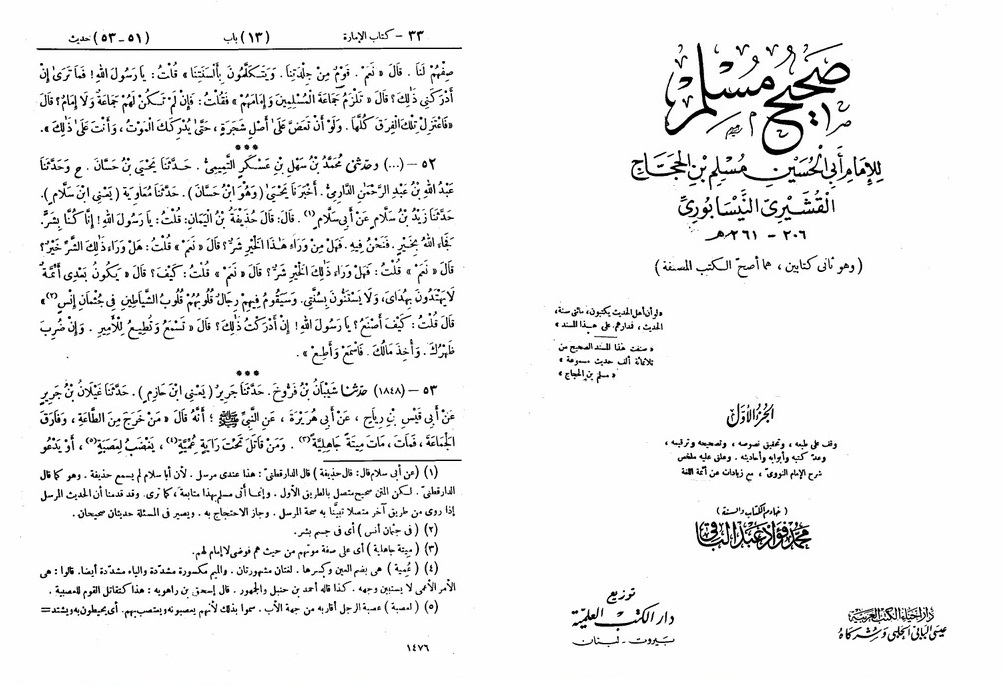 صحيح مسلم
للإمام أبي الحسين مسلم بن الحجاج
القشيري النيسابوري
٢٠٦ - ٢٦١ هـ
(وهو ثاني كتابين، هما أصح الكتب المصنفة)
«لو أن أهل الحديث يكتبون، مائتي سنة،
الحديث، فمدارهم على هذا المسند»
«صنفت هذا المسند الصحيح من
ثلاثمائة ألف حديث مسموعة»
«مسلم بن الحجاج»
الجزء الأول
وقف على طبعه، وتحقيق نصوصه، وتصحيحه وترقيمه،
وعد كتبه وأبوابه وأحاديثه. وعلق عليه ملخص
شرح الإمام النووي، مع زيادات عن أئمة اللغة
(خادم الكتاب والسنة)
محمد فؤاد عبد الباقي
توزيع
دار الكتب العلمية
بيروت - لبنان
دار إحياء الكتب العربية
عيسى البابي الحلبي وشركاه
٣٣ - كتاب الإمارة (١٣) باب (٥١-٥٣) حديث
صِفْهُمْ لَنَا. قَالَ «نَعَمْ. قَوْمٌ مِنْ جِلْدَتِنَا. وَيَتَكَلَّمُونَ بِأَلْسِنَتِنَا» قُلْتُ: يَا رَسُولَ اللهِ! فَمَا تَرَىٰ إِنْ
أَدْرَكَنِي ذَٰلِكَ؟ قَالَ «تَلْزَمُ جَمَاعَةَ الْمُسْلِمِينَ وَإِمَامَهُمْ» فَقُلْتُ: فَإِنْ لَمْ تَكُنْ لَهُمْ جَمَاعَةٌ وَلَا إِمَامٌ؟ قَالَ
«فَاعْتَزِلْ تِلْكَ الْفِرَقَ كُلَّهَا. وَلَوْ أَنْ تَعَضَّ عَلَىٰ أَصْلِ شَجَرَةٍ، حَتَّىٰ يُدْرِكَكَ الْمَوْتُ، وَأَنْتَ عَلَىٰ ذَٰلِكَ».
***
٥٢ - (...) وحَدَّثَنِي مُحَمَّدُ بْنُ سَهْلِ بْنِ عَسْكَرٍ التَّمِيمِيُّ. حَدَّثَنَا يَحْيَىٰ بْنُ حَسَّانَ. ح وَحَدَّثَنَا
عَبْدُ اللهِ بْنُ عَبْدِ الرَّحْمَٰنِ الدَّارِمِيُّ. أَخْبَرَنَا يَحْيَىٰ (وَهُوَ ابْنُ حَسَّانَ). حَدَّثَنَا مُعَاوِيَةُ (يَعْنِي ابْنَ سَلَّامٍ).
حَدَّثَنَا زَيْدُ بْنُ سَلَّامٍ عَنْ أَبِي سَلَّامٍ(١). قَالَ: قَالَ حُذَيْفَةُ بْنُ الْيَمَانِ: قُلْتُ: يَا رَسُولَ اللهِ! إِنَّا كُنَّا بِشَرٍّ.
فَجَاءَ اللهُ بِخَيْرٍ. فَنَحْنُ فِيهِ. فَهَلْ مِنْ وَرَاءِ هَٰذَا الْخَيْرِ شَرٌّ؟ قَالَ «نَعَمْ» قُلْتُ: هَلْ وَرَاءَ ذَٰلِكَ الشَّرِّ خَيْرٌ؟
قَالَ «نَعَمْ» قُلْتُ: فَهَلْ وَرَاءَ ذَٰلِكَ الْخَيْرِ شَرٌّ؟ قَالَ «نَعَمْ» قُلْتُ: كَيْفَ؟ قَالَ «يَكُونُ بَعْدِي أَئِمَّةٌ
لَا يَهْتَدُونَ بِهُدَايَ، وَلَا يَسْتَنُّونَ بِسُنَّتِي. وَسَيَقُومُ فِيهِمْ رِجَالٌ قُلُوبُهُمْ قُلُوبُ الشَّيَاطِينِ فِي جُثْمَانِ إِنْسٍ(٢)»
قَالَ قُلْتُ: كَيْفَ أَصْنَعُ؟ يَا رَسُولَ اللهِ! إِنْ أَدْرَكْتُ ذَٰلِكَ؟ قَالَ «تَسْمَعُ وَتُطِيعُ لِلْأَمِيرِ. وَإِنْ ضُرِبَ
ظَهْرُكَ. وَأُخِذَ مَالُكَ. فَاسْمَعْ وَأَطِعْ».
***
٥٣ - (١٨٤٨) حَدَّثَنَا شَيْبَانُ بْنُ فَرُّوخَ. حَدَّثَنَا جَرِيرٌ (يَعْنِي ابْنَ حَازِمٍ). حَدَّثَنَا غَيْلَانُ بْنُ جَرِيرٍ
عَنْ أَبِي قَيْسِ بْنِ رِيَاحٍ، عَنْ أَبِي هُرَيْرَةَ، عَنِ النَّبِيِّ ﷺ؛ أَنَّهُ قَالَ «مَنْ خَرَجَ مِنَ الطَّاعَةِ، وَفَارَقَ
الْجَمَاعَةَ، فَمَاتَ، مَاتَ مِيتَةً جَاهِلِيَّةً(٣). وَمَنْ قَاتَلَ تَحْتَ رَايَةٍ عُمِّيَّةٍ(٤)، يَغْضَبُ لِعَصَبَةٍ(٥)، أَوْ يَدْعُو
(١) (عن أبي سلام قال: قال حذيفة) قال الدارقطنيّ: هذا عندي مرسل. لأن أبا سلام لم يسمع حذيفة. وهو كما قال
الدارقطنيّ. لكن المتن صحيح متصل بالطريق الأول. وإنما أتى مسلم بهذا متابعة، كما ترى. وقد قدمنا أن الحديث المرسل
إذا روى من طريق آخر متصلا تبيّنا به صحة المرسل. وجاز الاحتجاج به. ويصير في المسئلة حديثان صحيحان.
(٢) (في جثمان أنس) أي في جسم بشر.
(٣) (ميتة جاهلية) أي على صفة موتهم من حيث هم فوضى لا إمام لهم.
(٤) (عمية) هي بضم العين وكسرها. لغتان مشهورتان. والميم مكسورة مشددة والياء مشدّدة أيضا. قالوا: هي
الأمر الأعمى لا يستبين وجهه. كذا قاله أحمد بن حنبل والجمهور. قال إسحق بن راهويه: هذا كتقاتل القوم للعصبية.
(٥) (لعصبة) عصبة الرجل أقاربه من جهة الأب. سموا بذلك لأنهم يعصبونه ويعتصب بهم. أي يحيطون به ويشتد=
١٤٧٦